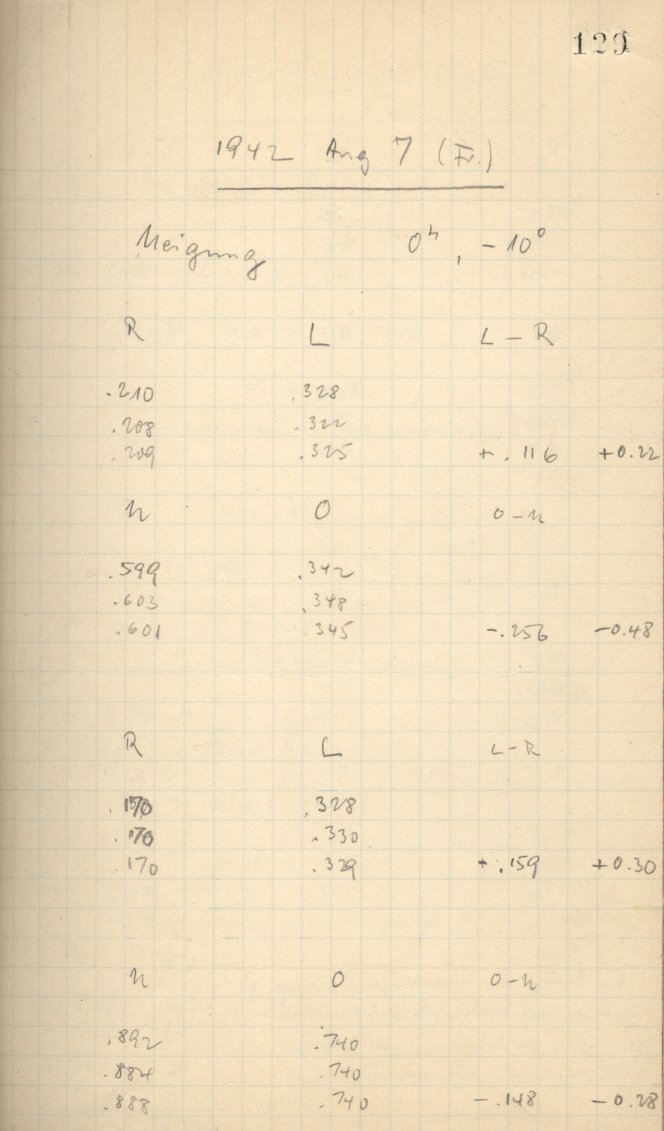 129
1942 Aug 7 (Fr.)
Neigung 0ʰ, -10°
R L L-R
.210 .328
.208 .322
.209 .325 +.116 +0.22
u O O-u
.599 .342
.603 .348
.601 .345 -.256 -0.48
R L L-R
.170 .328
.170 .330
.170 .329 +.159 +0.30
u O O-u
.892 .740
.884 .740
.888 .740 -.148 -0.28